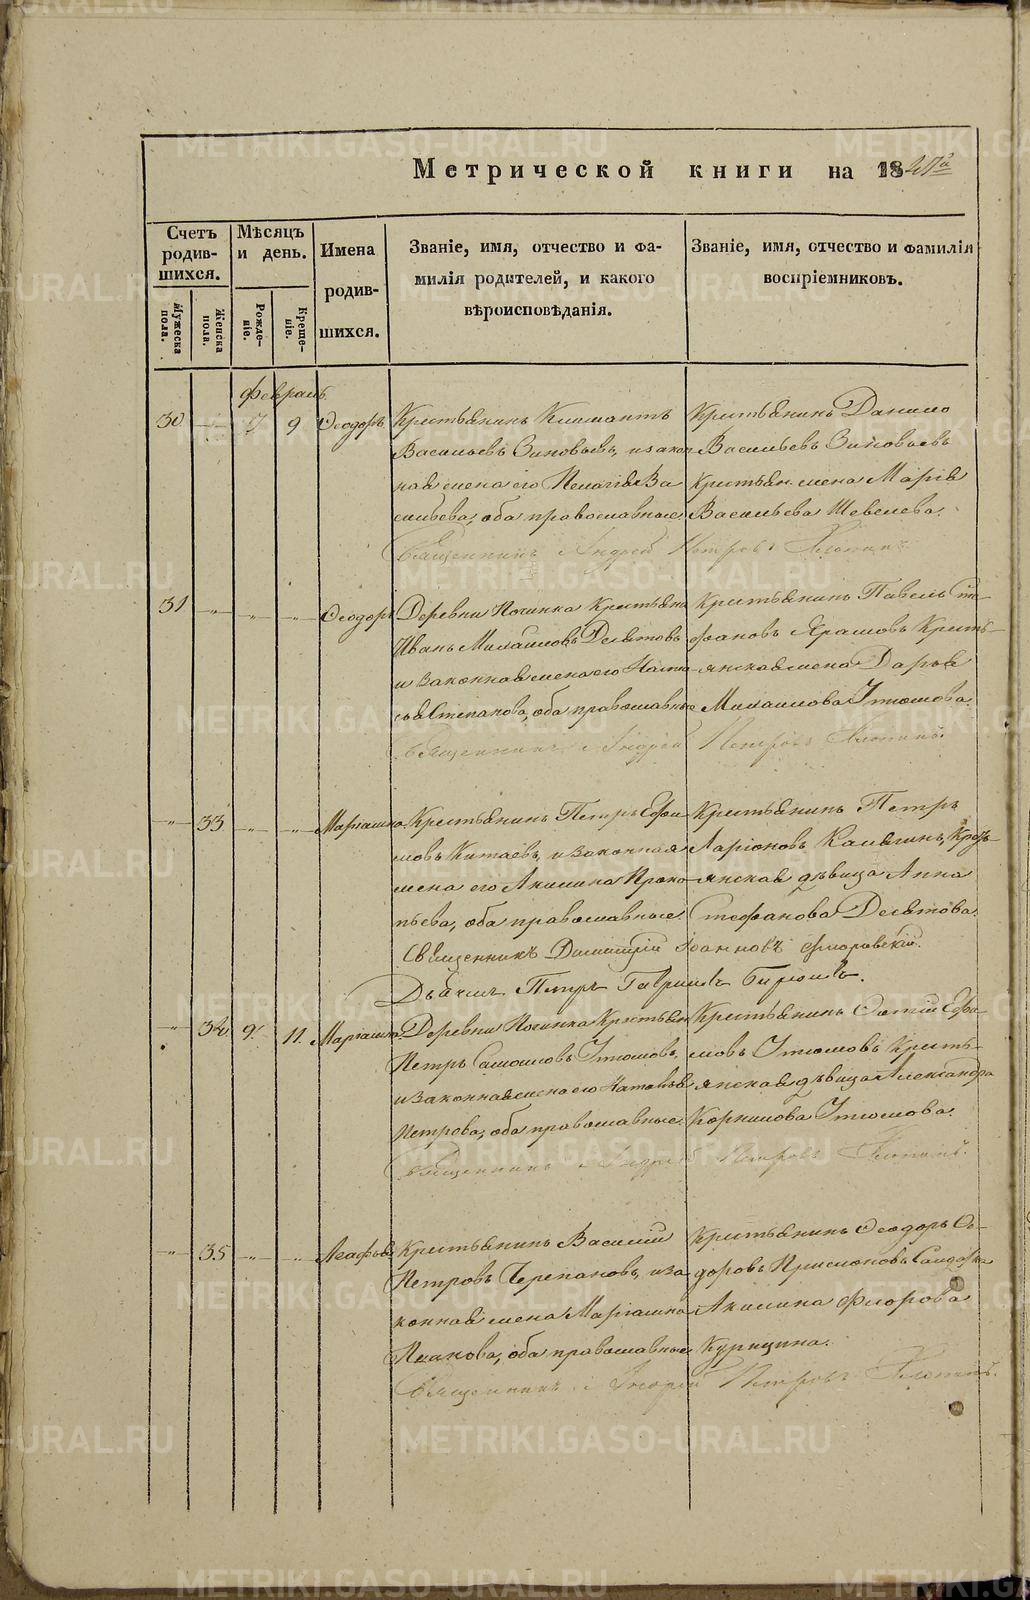 METRIKI.GASO-URAL.RU
Метрической книги на 1847го
Счетъ родив- шихся.
Мужеска пола.
Женска пола.
Мѣсяцъ и день.
Рожде- ніе.
Креще- ніе.
Имена родив- шихся.
Званіе, имя, отчество и фа-
милія родителей, и какого
вѣроисповѣданія.
Званіе, имя, отчество и фамилія
воспріемниковъ.
Февраль.
30 7 9 Ѳеодоръ
Крестьянинъ Климантъ
Васильевъ Зиновьевъ, и закон-
ная жена его Пелагія Ва
сильева, оба православные.
Священникъ Андрей Петровъ
Крестьянинъ Данило
Васильевъ Зиновьевъ
крестьян. жена Марія
Васильева Шевелева.
31 Ѳеодоръ
Деревни Починка Крестьянинъ
Иванъ Михайловъ Десятовъ
и законная жена его Наста
сья Степанова, оба православные
Священникъ Андрей Петровъ
Крестьянинъ Павелъ Сте-
фановъ Крестъ-
янская жена Дарья
Михаилова Утюмова.
33 Маріамна
Крестьянинъ Петръ Ефи
мовъ Китаевъ, и законная
жена его Акилина Проко-
пьева, оба православные
Священникъ Димитрій Іоанновъ Флоровскій.
Дьячекъ Петръ Гавриловъ
Крестьянинъ Петръ
Ларіоновъ Калягинъ, Кресть-
янская дѣвица Анна
Стефанова Десятова.
34 9. 11. Маріамна
Деревни Починка Крестьян.
Петръ Самойловъ Утюмовъ,
и законная жена его Наталья
Петрова, оба православные.
Священникъ Андрей Петровъ
Крестьянинъ Ефи-
мовъ Утюмовъ Кресть-
янская дѣвица Александра
Корнилова Утюмова.
35 Агафья
Крестьянинъ Василій
Петровъ Черепановъ, и за
конная жена Маріамна
Исакова, оба православные
Священникъ Андрей Петровъ
Крестьянинъ Ѳеодоръ Си-
доровъ
Акилина Флорова
Курицына.